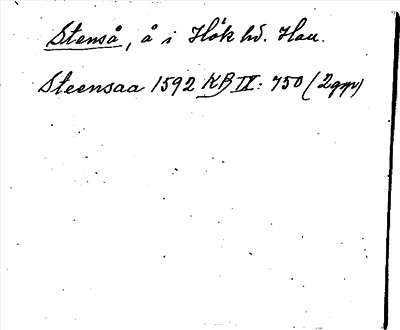 Stenså, å i Hök hd. Hall.
Steensaa 1592 KB IV: 750 (2ggr)